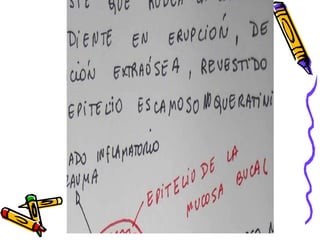 QUE RODEA
DIENTE EN ERUPCIÓN, DE
CIÓN EXTRAÓSEA, REVESTIDO
EPITELIO ESCAMOSO NO QUERATINI
ADO INFLAMATORIO
RAUMA
EPITELIO DE LA
MUCOSA BUCAL